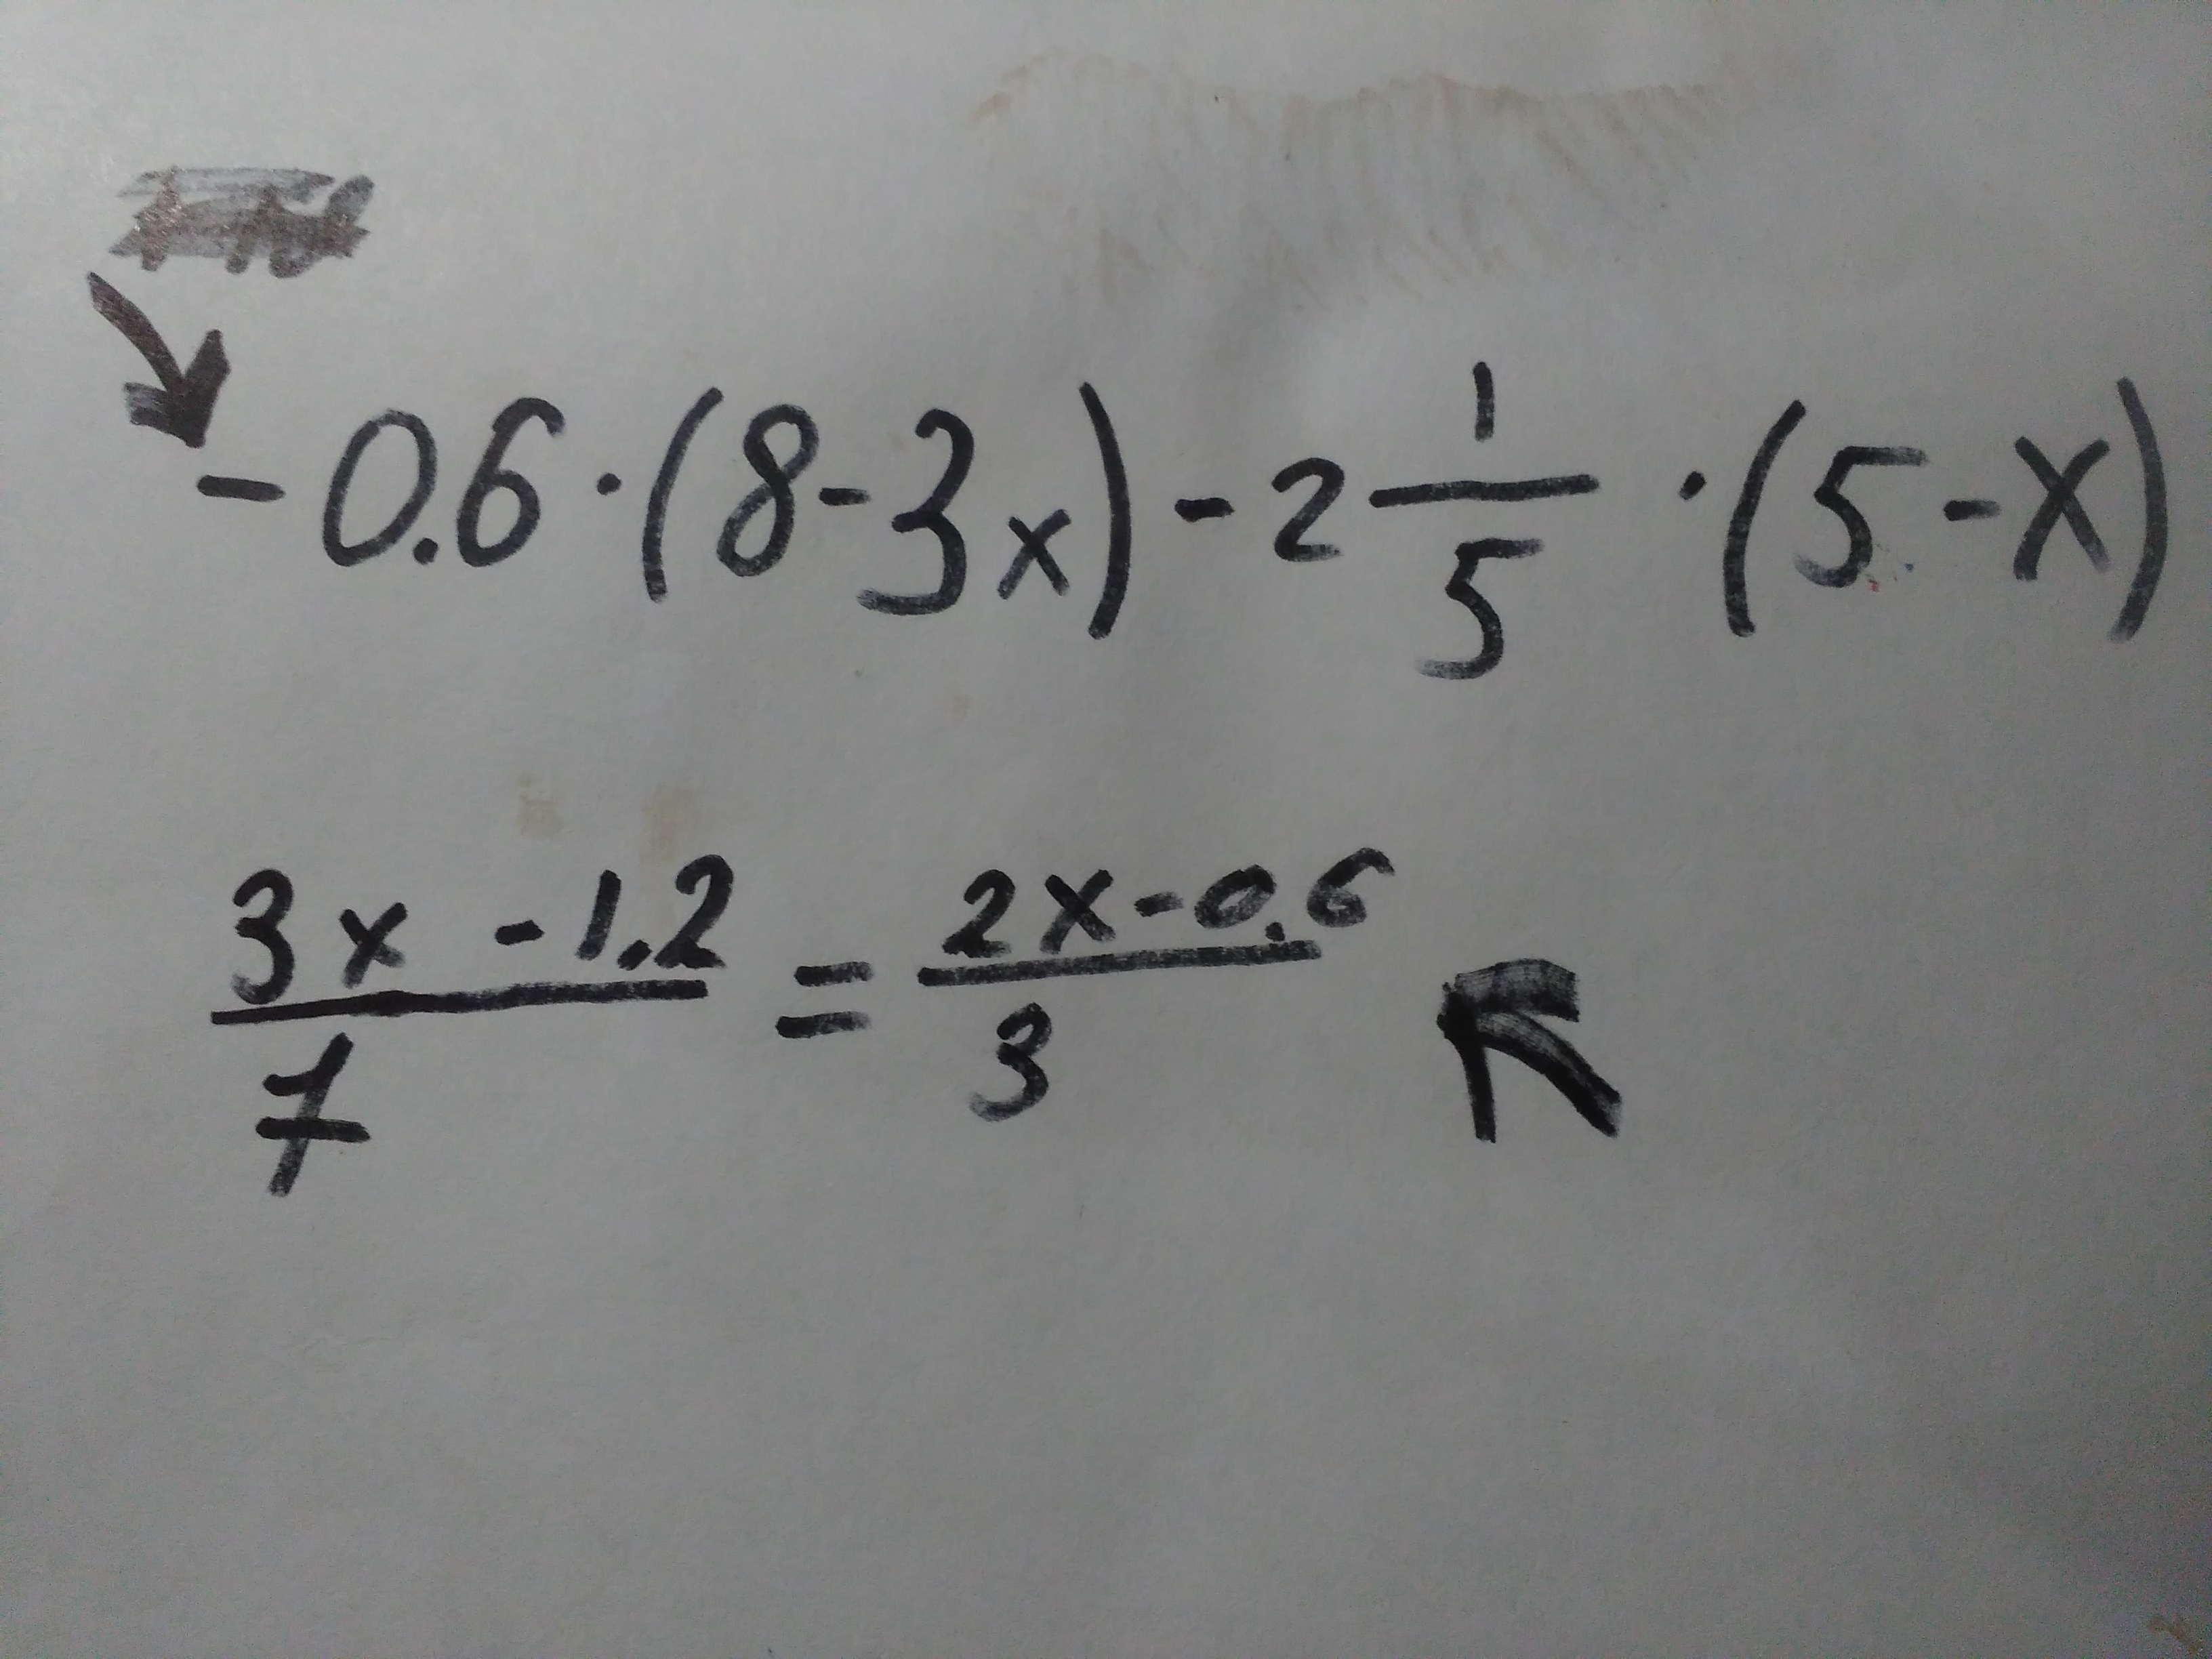 -0.6·(8-3x)-2 1/5 ·(5-x)
(3x-1.2)/7 = (2x-0.6)/3